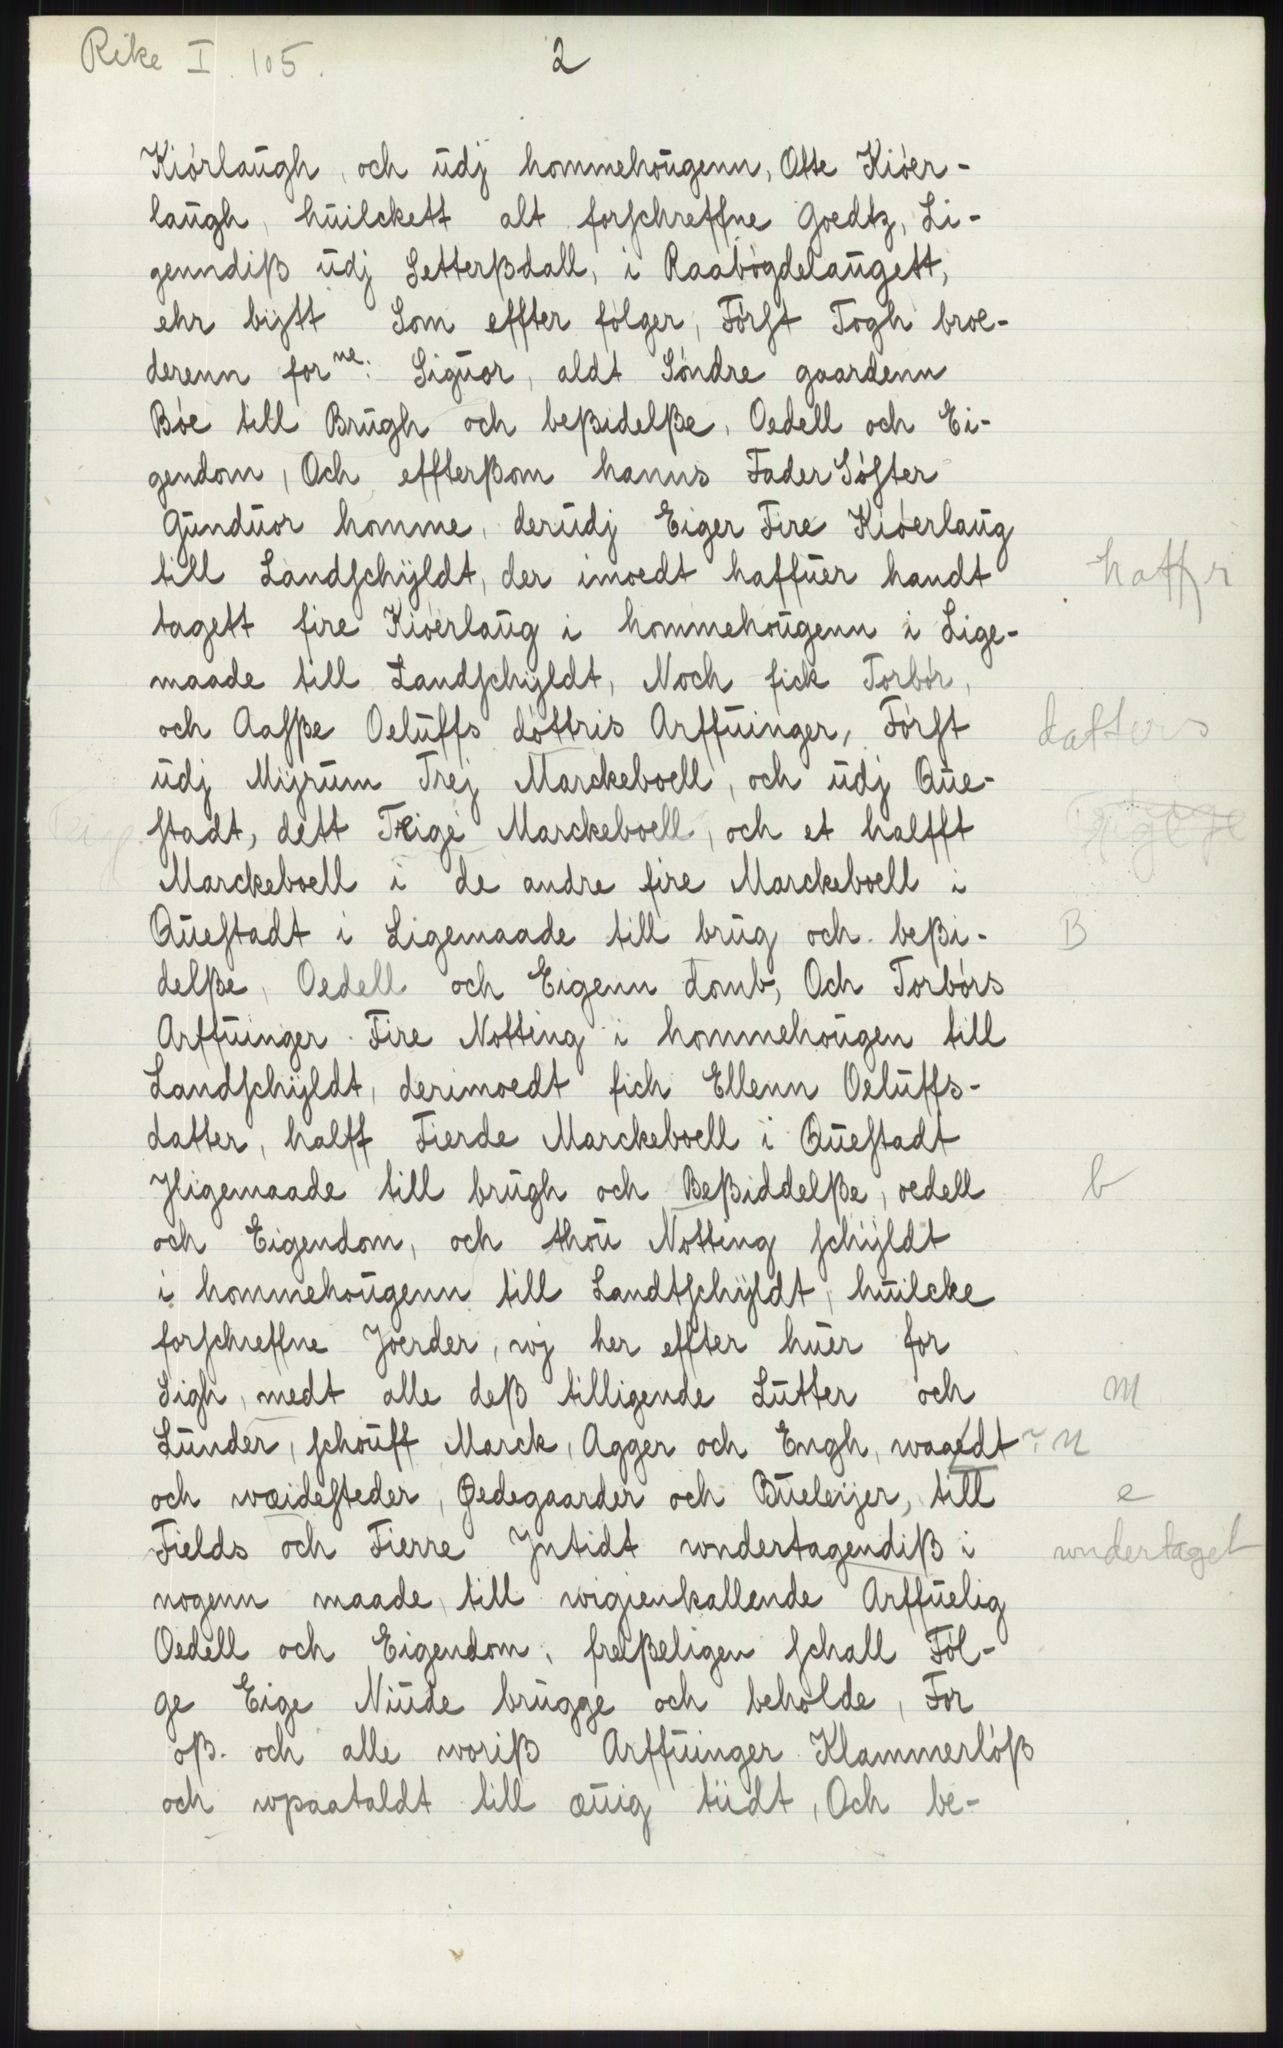 Rike I. 105.
2
Kiórlaugh, och udj hommehougenn, Otte Kióer-
laugh, huilckett alt forschreffne Goedtz, Li-
genndiß udj Setterßdall, i Raabogdelaugett,
ehr bÿtt Som effter fólger, Fórst Togh broe-
derenn for ne: Siguor, aldt Sóndre gaardenn
Bóe till Brugh och beßidelße, Oedell och Ei-
gendom, Och effterßom hanns Fader Sóster
Gunduor homme, derudj Eiger Fire Kióerlaug
till Landschÿldt, der imoedt haffuer handt
haffr
tagett fire Kióerlaug i hommehougenn i Lige-
maade till Landschÿldt, Noch fick Torbór,
och Aasße Oeluffs dóttris Arffuinger, Fórst
datters
udj Mÿrum Trej Marckeboell, och udj Que-
stadt, dett Treige Marckeboell, och et halfft
Marckeboell i de andre fire Marckeboell i
Questadt i Ligemaade till brug och beßi-
B
delße, Oedell och Eigenn domb, Och Torbórs
Arffuinger Fire Notting i hommehougen till
Landschÿldt, derimoedt fich Ellenn Oeluffs-
datter, halff Fierde Marckeboell i Questadt
Jligemaade till brugh och Beßiddelße, oedell
b
och Eigendom, och thou Notting schÿldt
i hommehougenn till Landtschÿldt, huilcke
forschreffne Joerder, wj her effter huer for
Sigh, medt alle deß tilligende Lutter och
M
Lunder, schouff Marck, Agger och Engh, waadt
? n
och wæidesteder, Ødegaarder och Bueleijer, till
e
Fields och Fierre Jntidt wndertagendiß i
wndertaget
nogenn maade, till wigienkallende Arffuelig
Oedell och Eigendom, freßeligen schall Föl-
ge Eige Niude brugge och beholde, For
oß och alle woriß Arffuinger Klammerlóß
och wpaataldt till æuig tiidt, Och be-